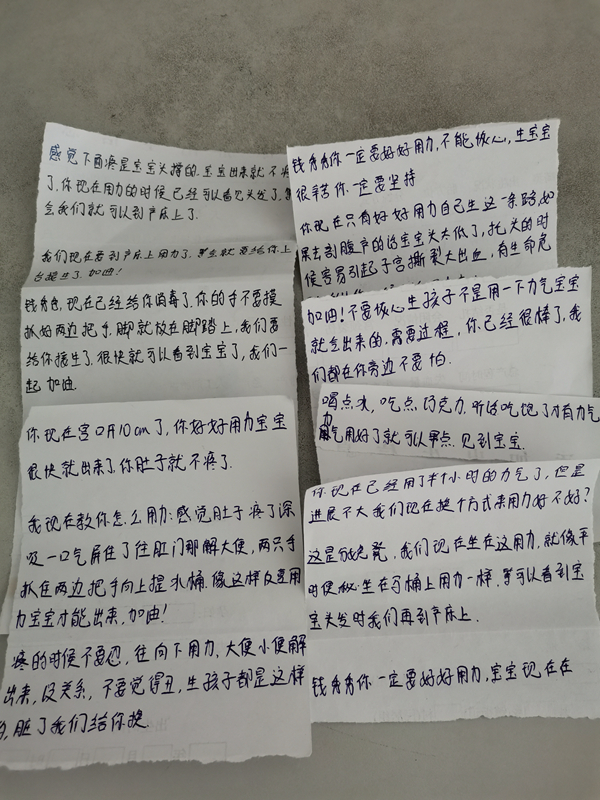 感觉下面疼是宝宝头撑的.宝宝出来就不疼
了,你现在用力的时候已经可以看见头发了,等
会我们就可以到产床上了.
我们现在要到产床上用力了.医生就要给你上
台接生了.加油!
钱秀秀,现在已经给你消毒了.你的手不要摸
抓好两边把手,脚就放在脚踏上,我们要
给你接生了.很快就可以看到宝宝了,我们一
起加油.
你现在宫口开10cm了,你好好用力宝宝
很快就出来了.你肚子就不疼了.
我现在教你怎么用力:感觉肚子疼了深
吸一口气屏住了往肛门那解大便,两只手
抓在两边把手向上提水桶.像这样反复用
力宝宝才能出来,加油!
疼的时候不要忍,往向下用力,大便小便解
出来,没关系,不要觉得丑,生孩子都是这样
的,脏了我们给你换
钱秀秀你一定要好好用力,不能灰心,生宝宝
很辛苦你一定要坚持
你现在只有好好用力自己生这一条路,如
果去剖腹产的话宝宝头太低了,托头的时
候容易引起子宫撕裂大出血,有生命危
加油!不要灰心生孩子不是用一下力气宝宝
就会出来的,需要过程,你已经很棒了,我
们都在你旁边不要怕.
喝点水,吃点巧克力.听话吃饱了才有力气
力气用好了就可以早点见到宝宝.
你现在已经用了半个小时的力气了,但是
进展不大我们现在换个方式来用力好不好?
这是分娩凳,我们现在坐在这用力,就像平
时便秘坐在马桶上用力一样.等可以看到宝
宝头发时我们再到产床上.
钱秀秀你一定要好好用力,宝宝现在在